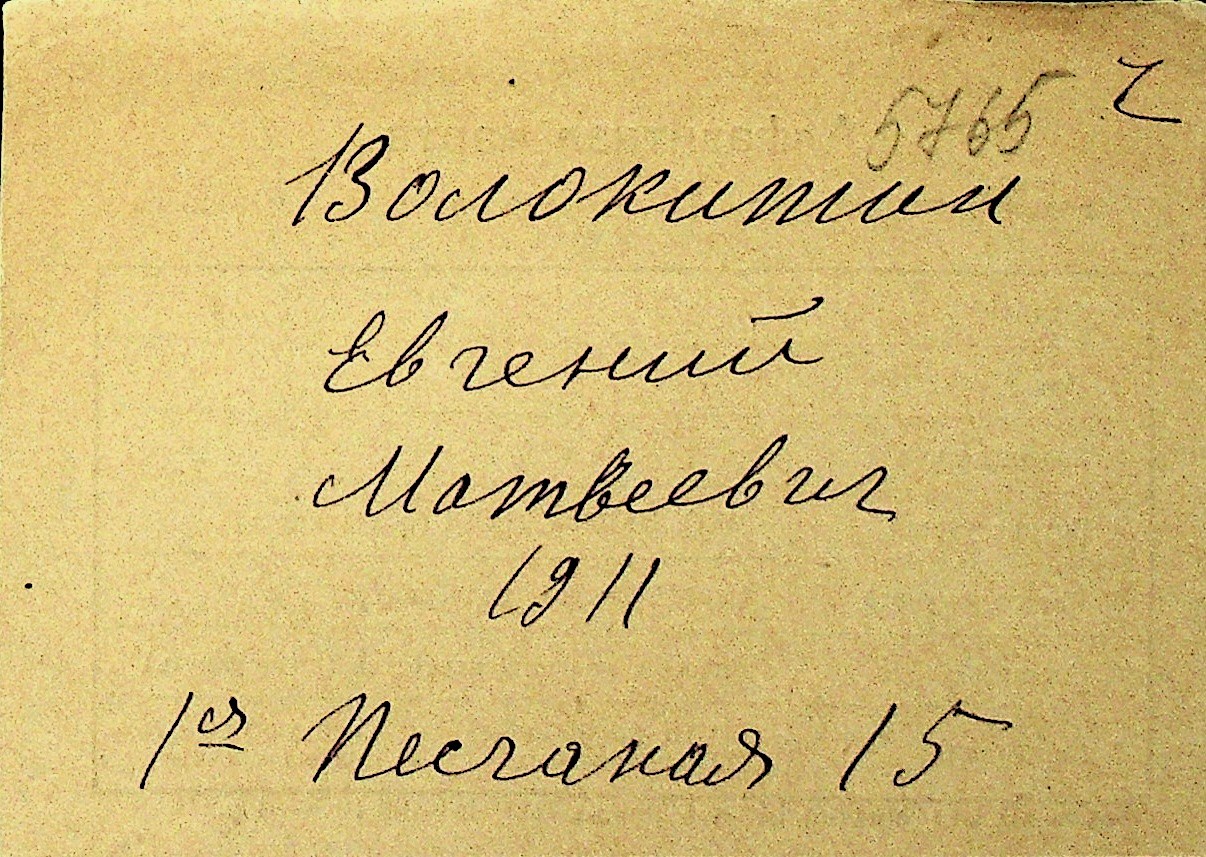 5765 ч
Волокитин
Евгений
Матвеевич
1911
1ая Песчаная 15